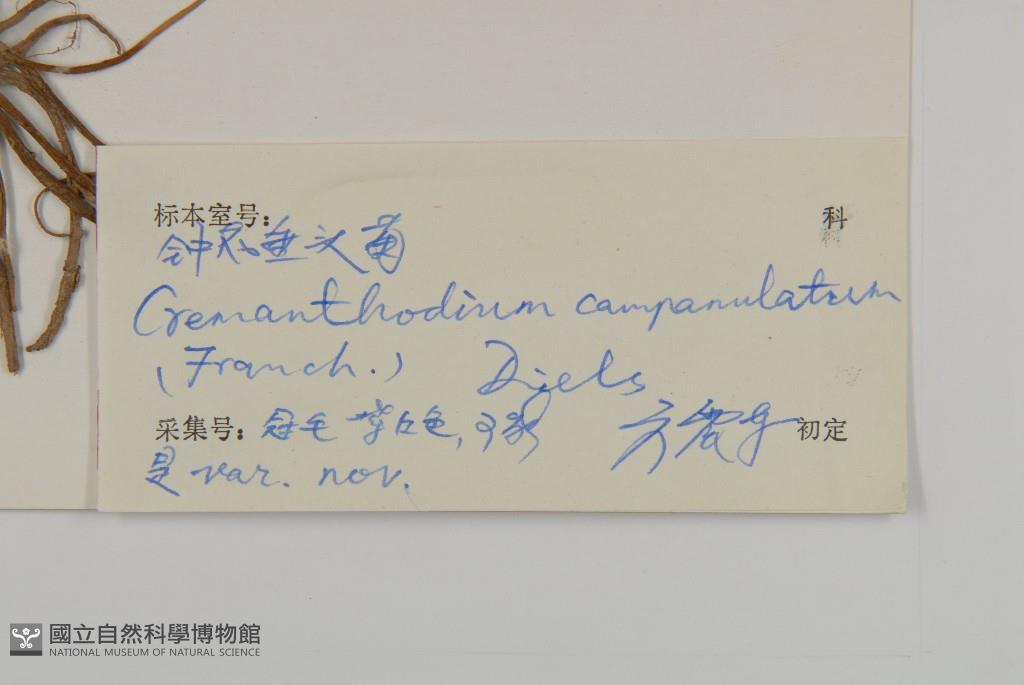 标本室号:
科
钟花垂头菊
Cremanthodium campanulatum
(Franch.) Diels
采集号: 冠毛紫红色, 可能 方震东 初定
是 var. nov.
國立自然科學博物館
NATIONAL MUSEUM OF NATURAL SCIENCE